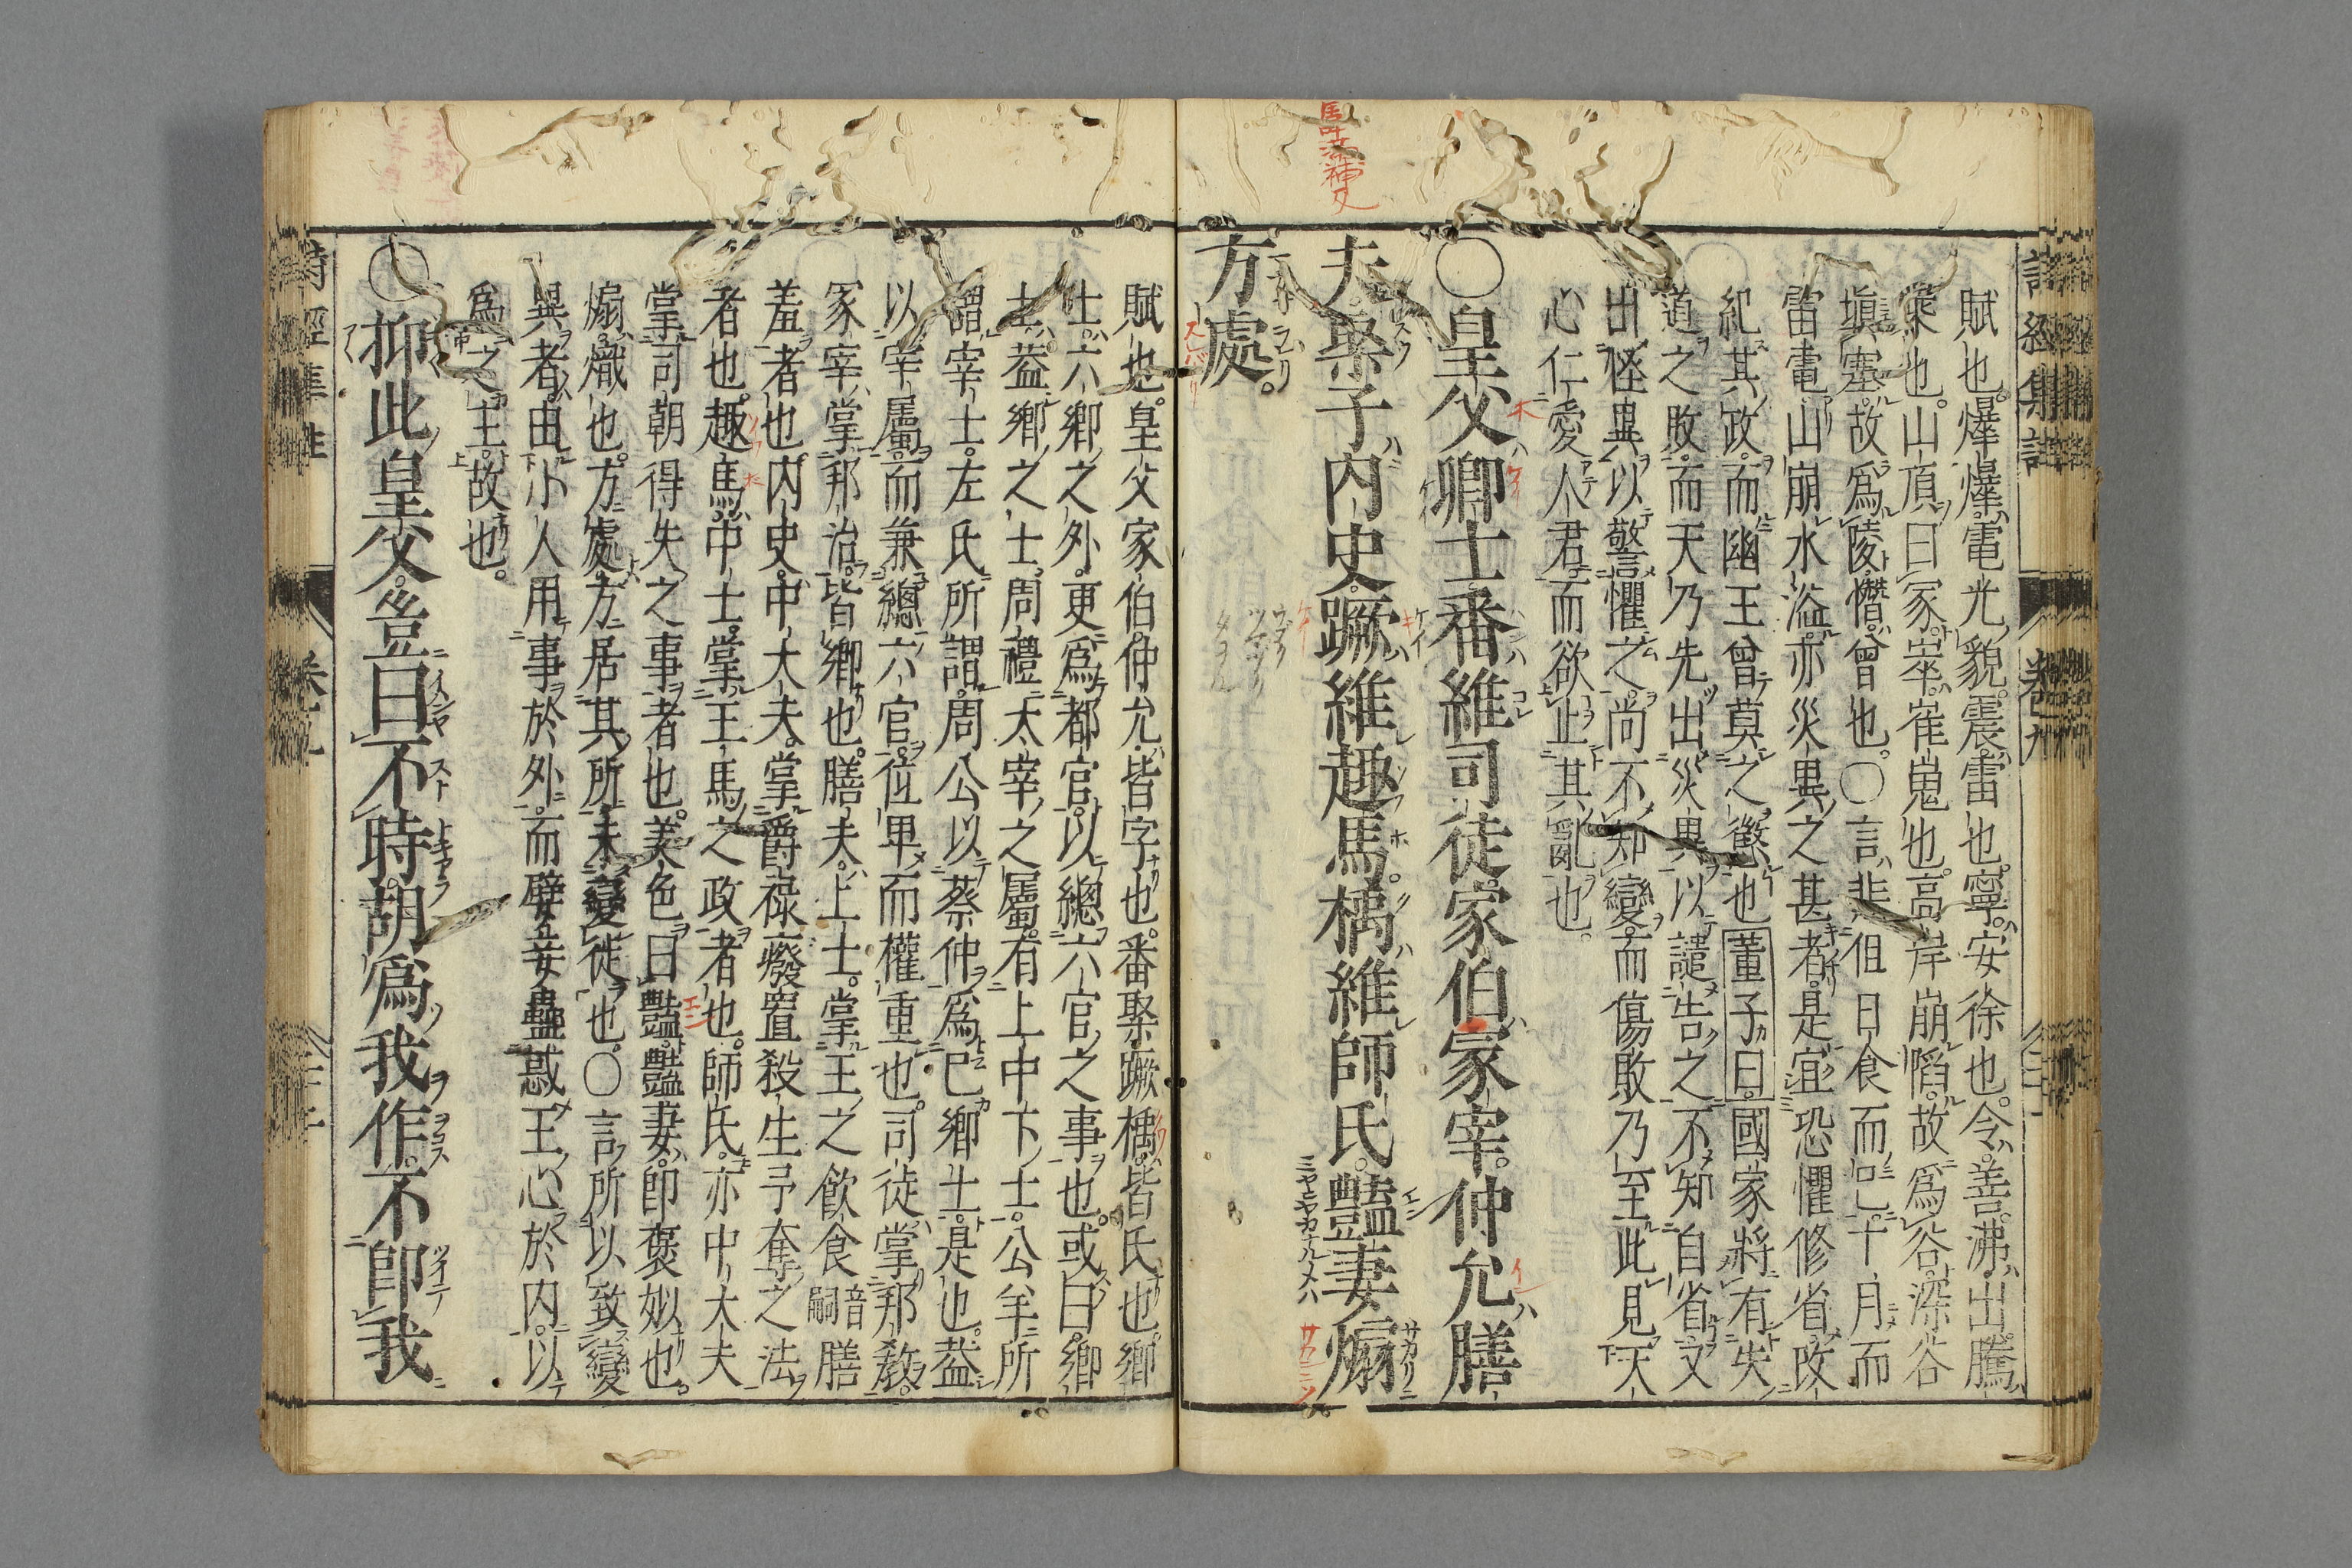 賦也。爗爗、電光貌。震、雷也。寧、安徐也。令、善。沸、出。騰、
乗也。山頂曰冢。崒、崔嵬也。高岸崩陷、故爲谷。深谷
塡塞、故爲陵。憯、曾也。〇言非但日食而已。十月而
雷電、山崩水溢、亦災異之甚者。是宜恐懼修省、改
紀其政。而幽王曾莫之懲也。董子曰、國家將有失
道之敗、而天乃先出災異、以譴告之。不知自省、又
出怪異、以警懼之。尚不知變、而傷敗乃至。此見天
心仁愛人君、而欲止其亂也。
〇皇父卿士。番維司徒。家伯冢宰。仲允膳
夫。棸子内史。蹶維趣馬。楀維師氏。豔妻煽
方處。
賦也。皇父家伯仲允、皆字也。番棸蹶楀、皆氏也。卿
士、六卿之外、更爲都官、以總六官之事也。或曰、卿
士、蓋卿之士。周禮太宰之屬、有上中下士。公羊所
謂宰士、左氏所謂周公以蔡仲爲己卿士是也。蓋
以宰屬而兼總六官、位卑而權重也。司徒、掌邦敎。
冢宰、掌邦治。皆卿也。膳夫、上士。掌王之飮食膳
音嗣
羞者也。内史、中大夫。掌爵祿廢置殺生予奪之法
者也。趣馬、中士。掌王馬之政者也。師氏、亦中大夫。
掌司朝得失之事者也。美色曰豔。豔妻、即褒姒也。
煽、熾也。方處、方居其所、未變徙也。〇言所以致變
異者、由小人用事於外、而嬖妾蠱惑王心於内、以
爲之主故也。
〇抑此皇父。豈曰不時。胡爲我作。不即我
詩經集註
卷五